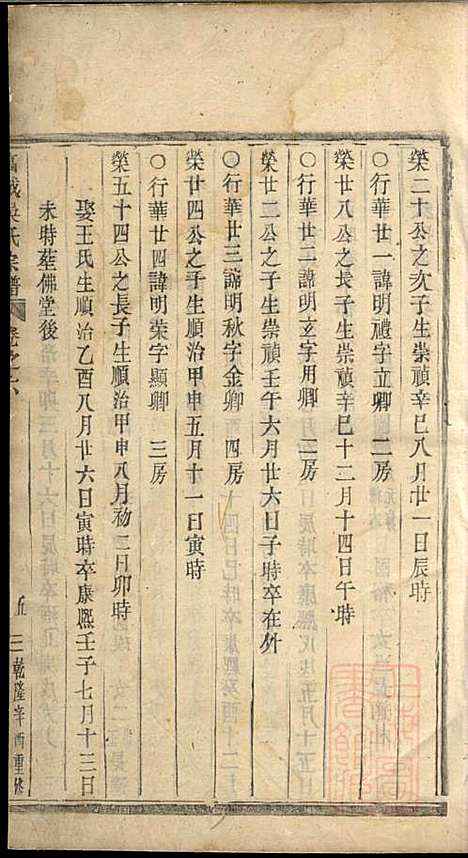 榮二十公之次子生崇禎辛巳八月廿一日辰時
○行華廿一諱明禮字立卿 二房
榮廿八公之長子生崇禎辛巳十二月十四日午時
○行華廿二諱明玄字用卿 二房
榮廿二公之子生崇禎壬午六月廿六日子時卒在外
○行華廿三諱明秋字金卿 四房
榮廿四公之子生順治甲申五月十一日寅時
○行華廿四諱明荣字顯卿 三房
榮五十四公之長子生順治甲申八月初二日卯時
娶王氏生順治乙酉八月廿六日寅時卒康熙壬子七月十三日
未時塟佛堂後
城吳氏宗譜 卷之六 三 乾隆辛酉重修